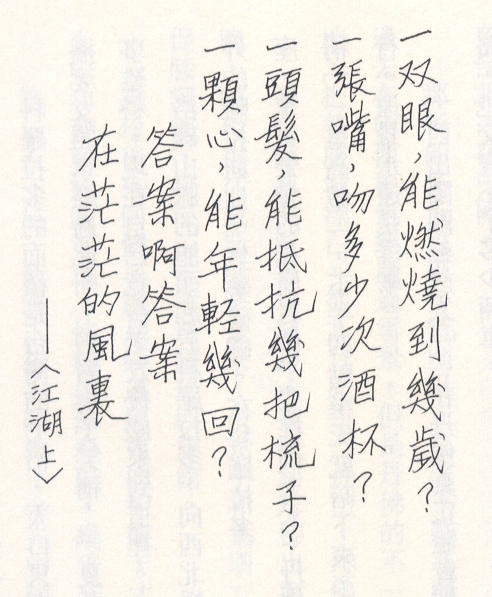 一双眼，能燃燒到幾歲？
一張嘴，吻多少次酒杯？
一頭髮，能抵抗幾把梳子？
一顆心，能年輕幾回？
答案啊答案
在茫茫的風裏
——〈江湖上〉